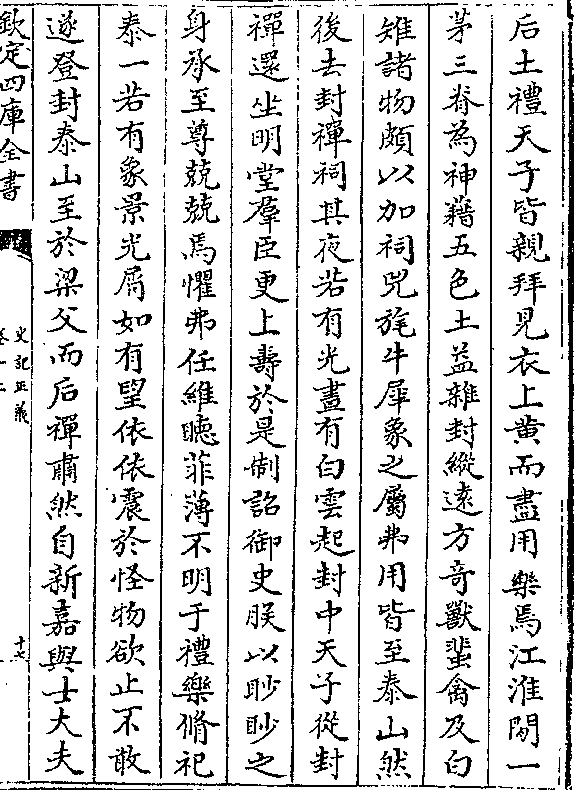 后土禮天子皆親拜見衣上黄而盡用樂焉江淮間一
茅三脊為神藉五色土益雜封縱遠方奇獸蜚禽及白
雉諸物頗以加祠兕旄牛犀象之屬弗用皆至泰山然
後去封禪祠其夜若有光晝有白雲起封中天子從封
禪還坐明堂羣臣更上壽於是制詔御史朕以眇眇之
身承至尊兢兢焉懼弗任維聴菲薄不明于禮樂脩祀
泰一若有象景光屑如有望依依震於怪物欲止不敢
遂登封泰山至於梁父而后禪肅然自新嘉與士大夫
欽定四庫全書
史記正義